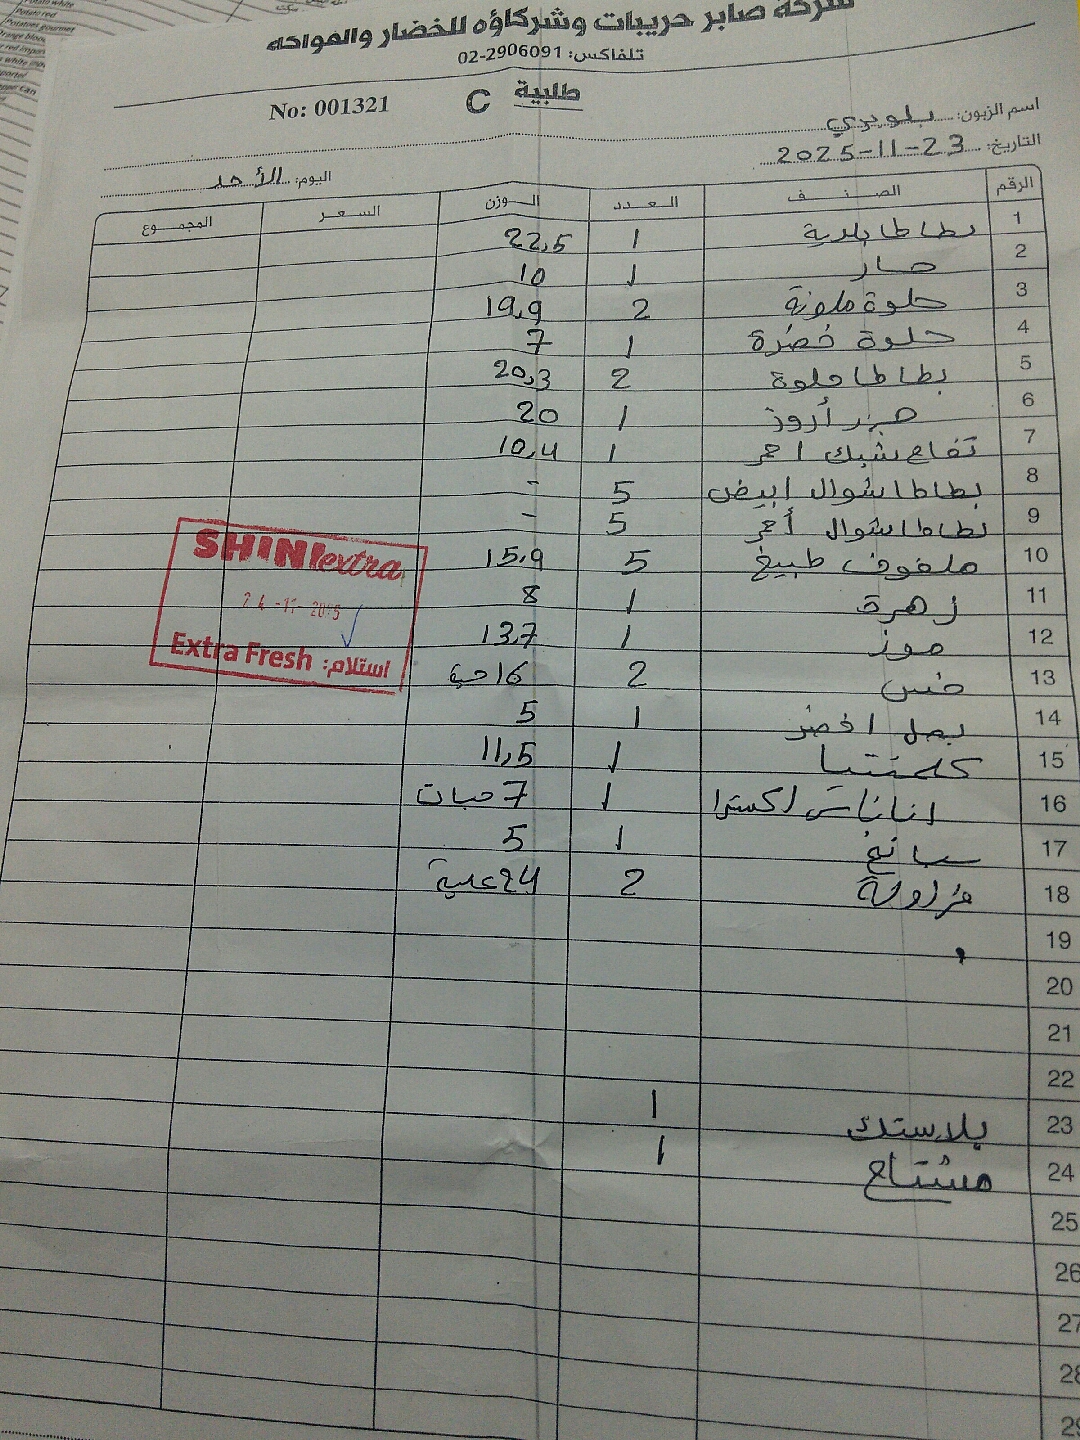 شركة صابر حريبات وشركاؤه للخضار والفواكه
تلفاكس: 02-2906091
No: 001321 C طلبية
اسم الزبون:
التاريخ: 2025-11-23
اليوم: الأحد
الرقم الصنف العدد الوزن السعر المجموع
1 بطاطا بلدية 1 22,5
2 حار 1 10
3 حلوة ملونة 2 19,9
4 حلوة خضرة 1 7
5 بطاطا حلوة 2 20,3
6 جزر أروز 1 20
7 تفاح شبك احمر 1 10,4
8 بطاطا شوال ابيض 5 -
9 بطاطا شوال أحمر 5 -
10 ملفوف طبيخ 5 15,9
11 زهرة 1 8
12 موز 1 13,7
13 خس 2 16 حبة
14 بصل اخضر 1 5
15 كلمنتينا 1 11,5
16 اناناس اكسترا 1 7 حبات
17 سبانخ 1 5
18 فراولة 2 24 علبة
19
20
21
22
23 بلاستك 1
24 مشتاح 1
25
26
27
28
29
SHINI extra
24 -11- 2025
Extra Fresh استلام:
Potato red
Potatoes gourmet